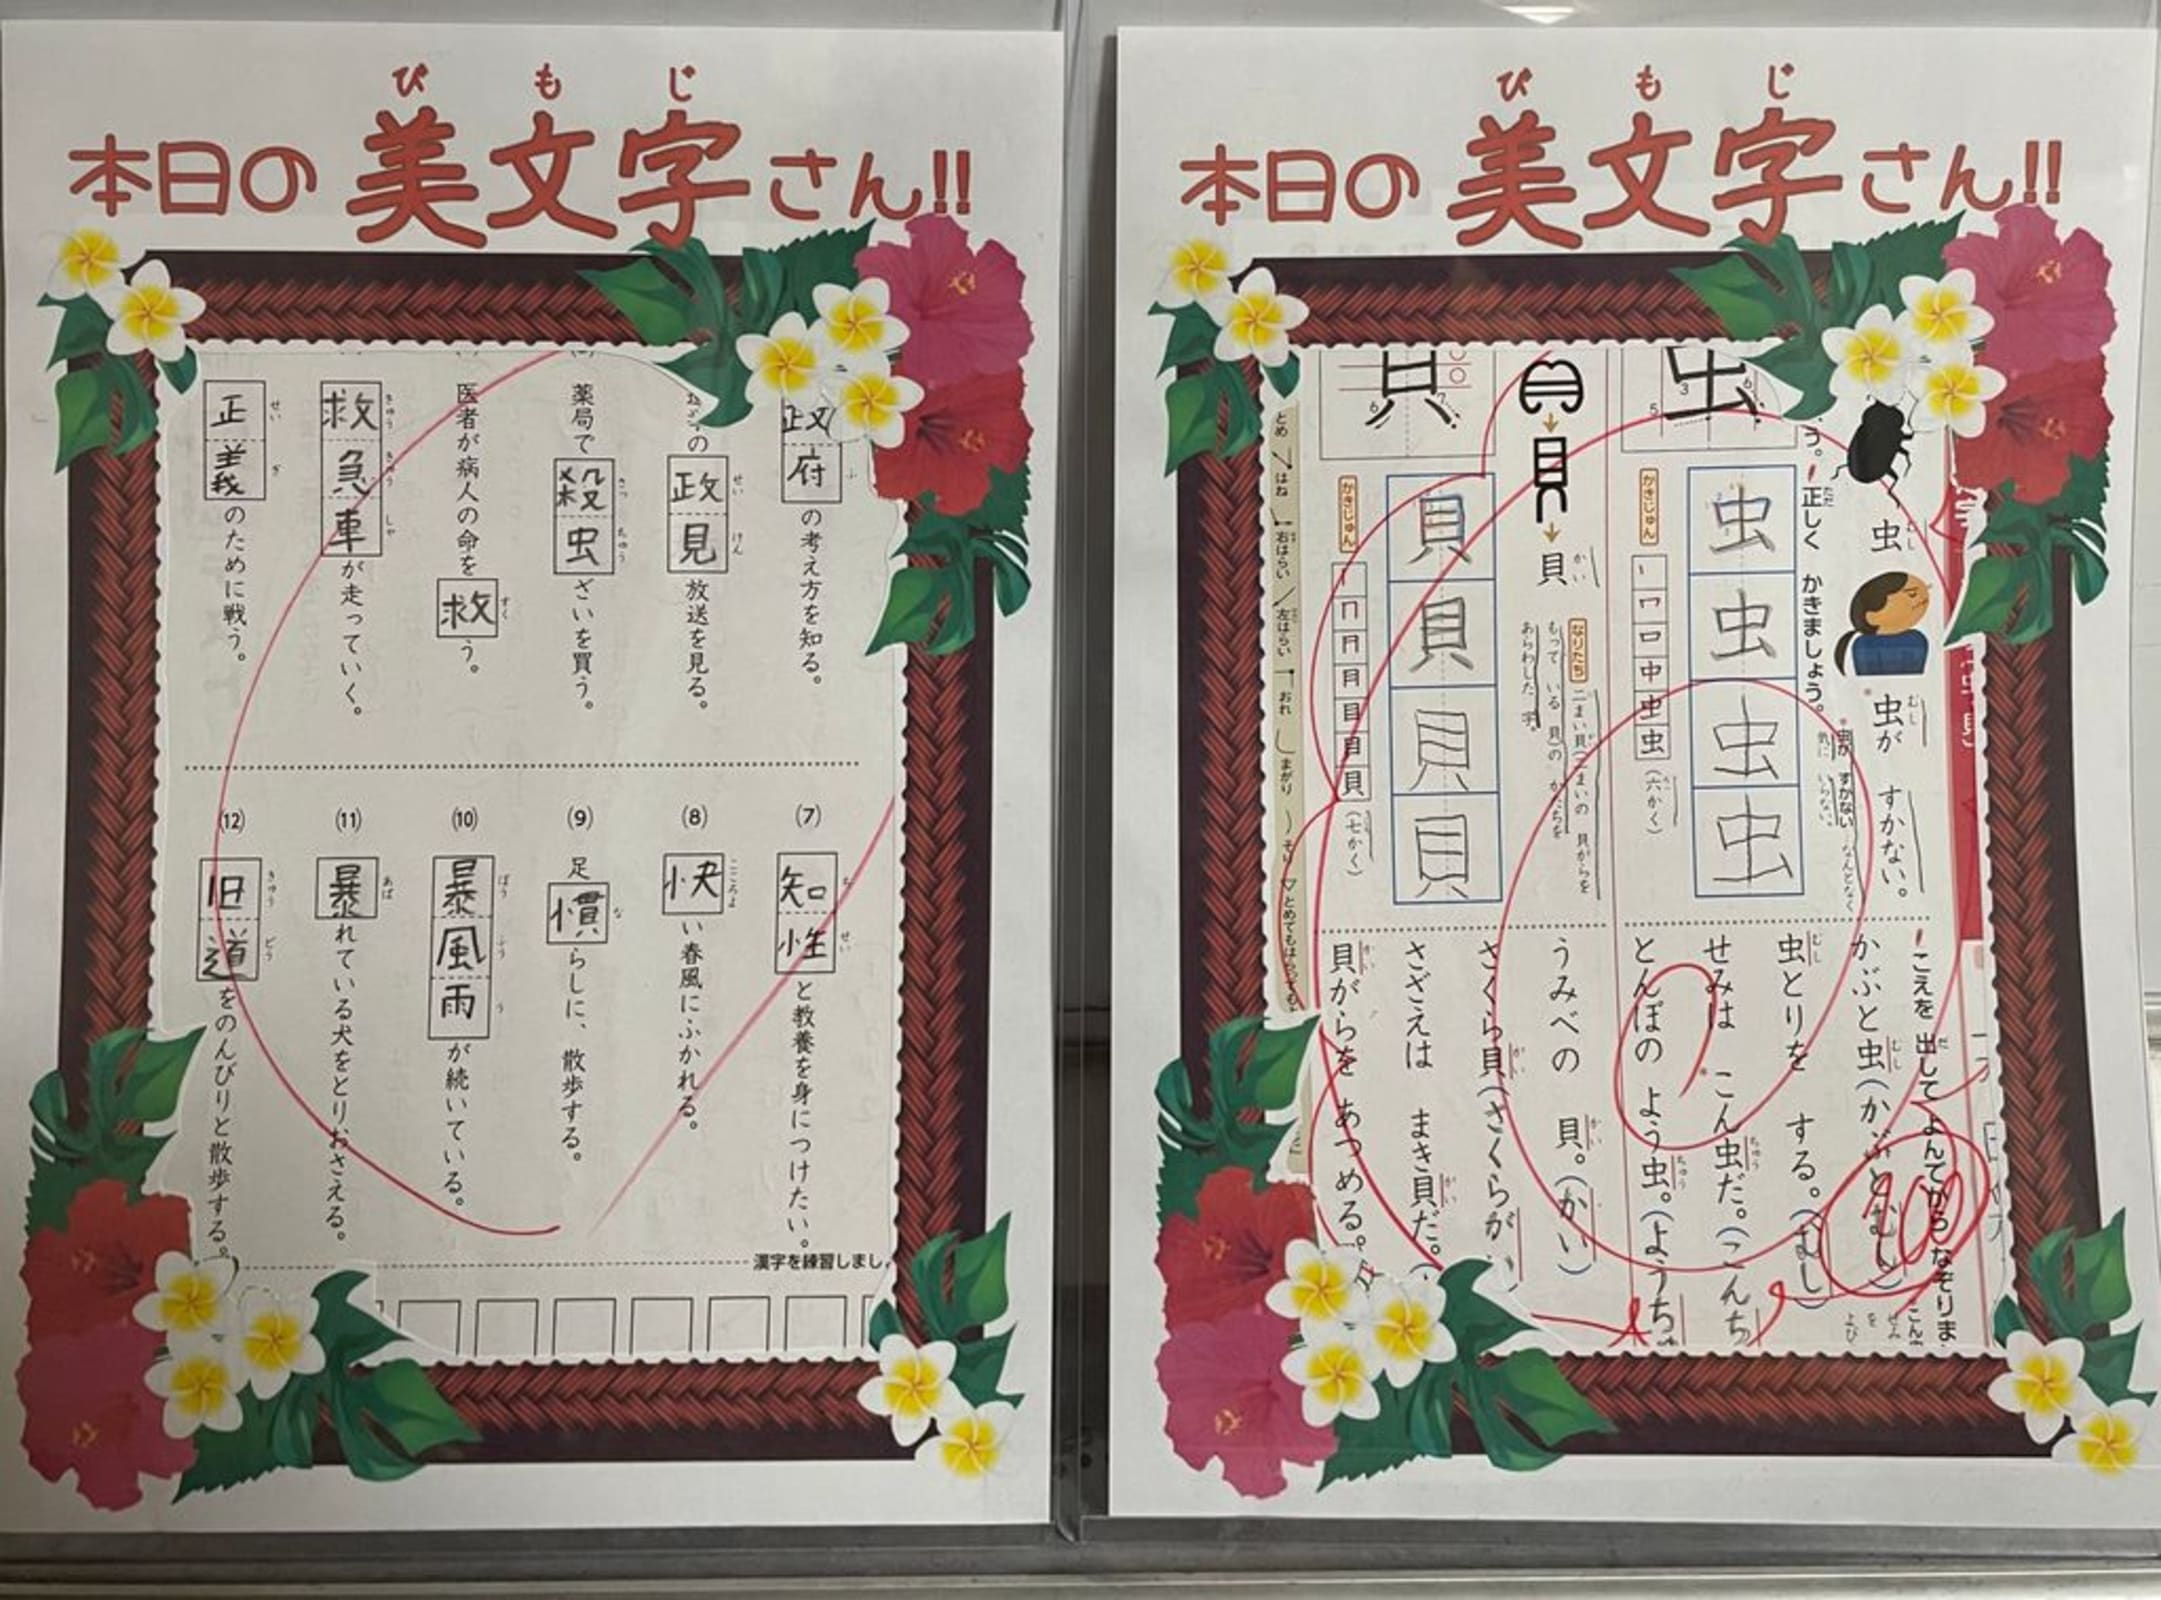 びもじ
本日の美文字さん!!
政府の考え方を知る。
の政見放送を見る。
薬局で殺虫ざいを買う。
医者が病人の命を救う。
救急車が走っていく。
正義のために戦う。
(7) 知性と教養を身につけたい。
(8) 快い春風にふかれる。
(9) 足慣らしに、散歩する。
(10) 暴風雨が続いている。
(11) 暴れている犬をとりおさえる。
(12) 旧道をのんびりと散歩する。
漢字を練習しまし
びもじ
本日の美文字さん!!
虫
虫が すかない。
*虫が すかない…なんとなく
気に いらない。
正しく かきましょう。
虫
虫
虫
虫
虫
かきじゅん
(六かく)
貝
なりたち
二まい貝(二まいの 貝がらを
もって いる 貝)の かたちを
あらわした 字。
貝
貝
貝
貝
貝
かきじゅん
(七かく)
とめ はね 右はらい 左はらい おれ まがり そり
こえを 出して よんでから なぞりま
かぶと虫(かぶとむし)
虫とりを する。(むし)
せみは こん虫だ。(こんち
とんぼの よう虫。(ようち
うみべの 貝。(かい)
さくら貝(さくらが
さざえは まき貝だ。(
貝がらを あつめる。
100